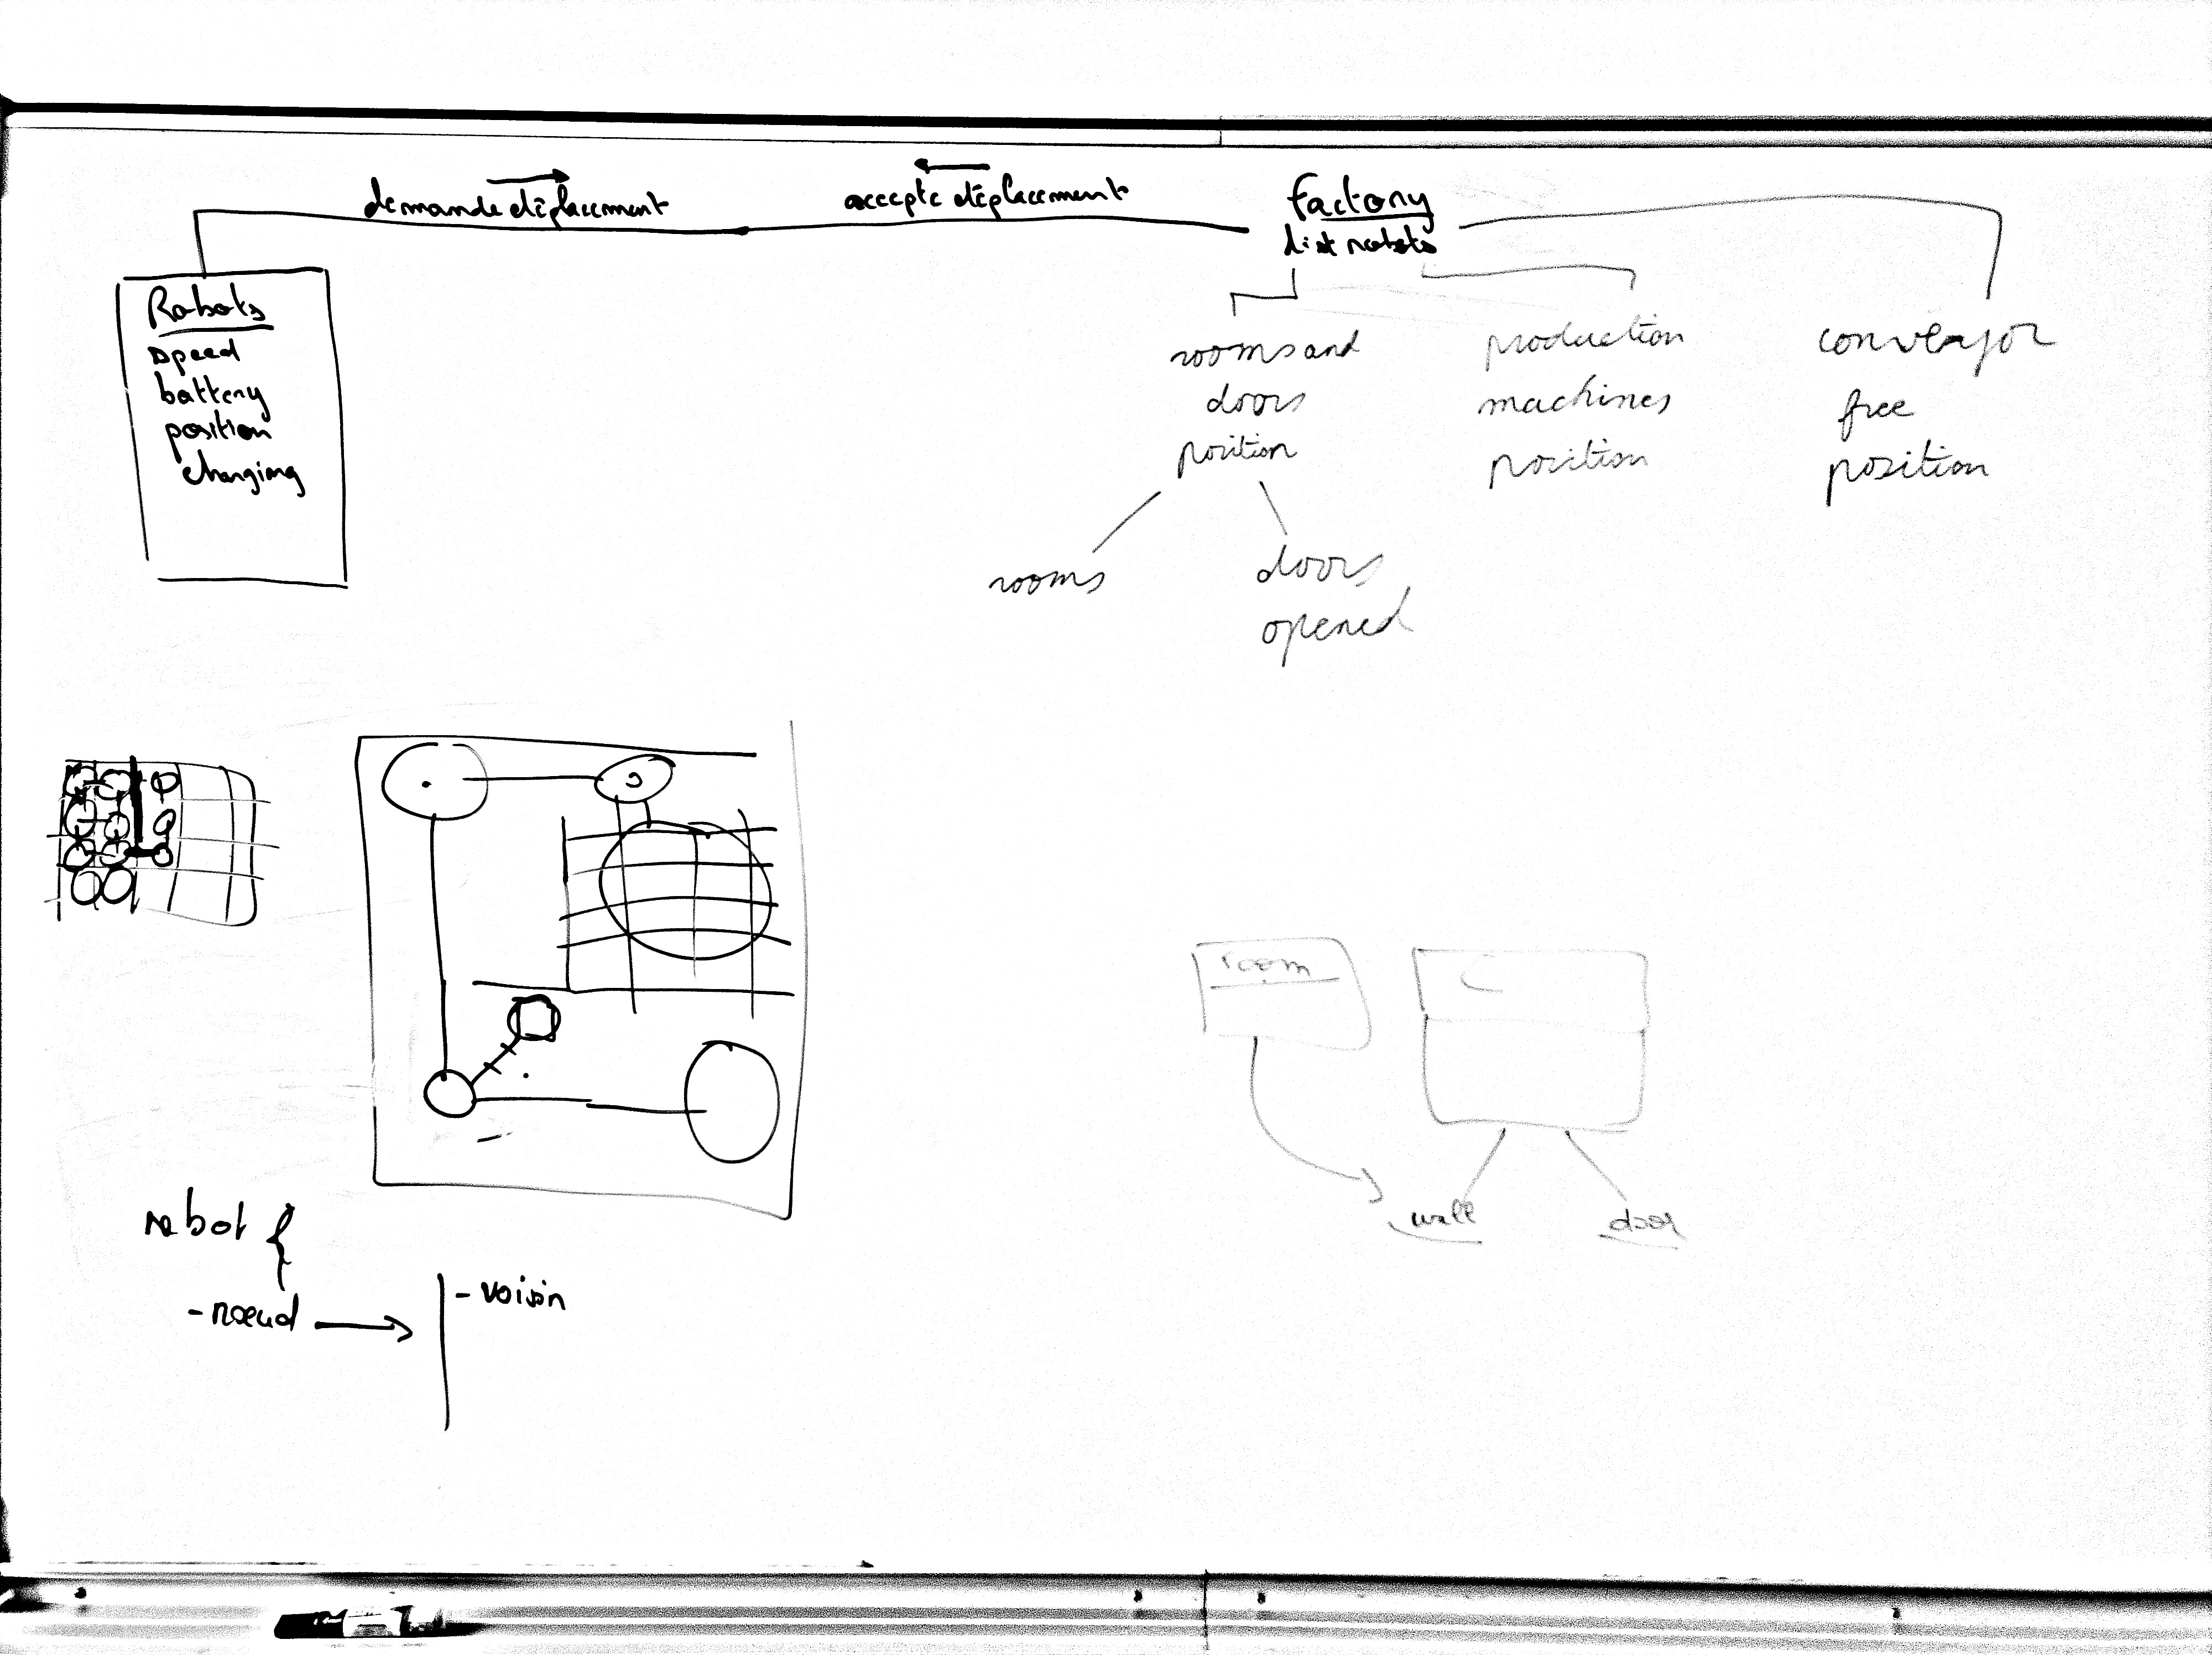 demande déplacement
accepte déplacement
factory
list robots
Robots
speed
battery
position
charging
rooms and
doors
position
production
machines
position
conveajor
free
position
rooms
doors
opened
room
wall
door
robot {
- noeud
- voisin